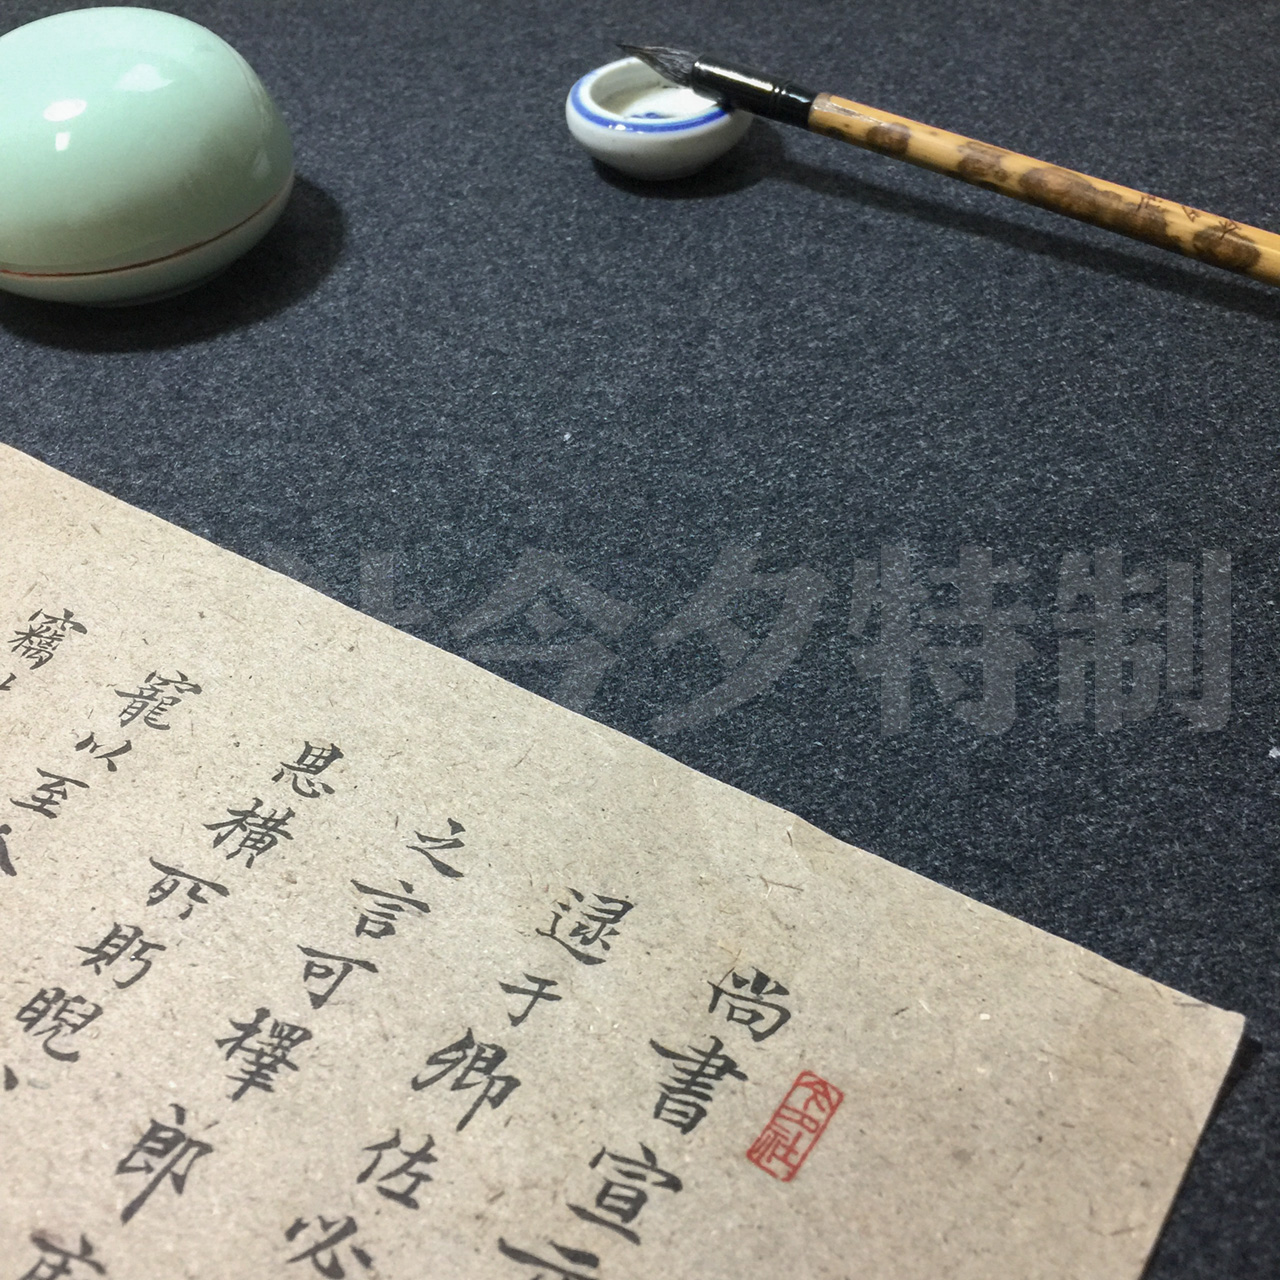 尚書宣
逮于卿佐必
之言可擇郎
恩橫所盱睨
寵以至
竊
今夕特制